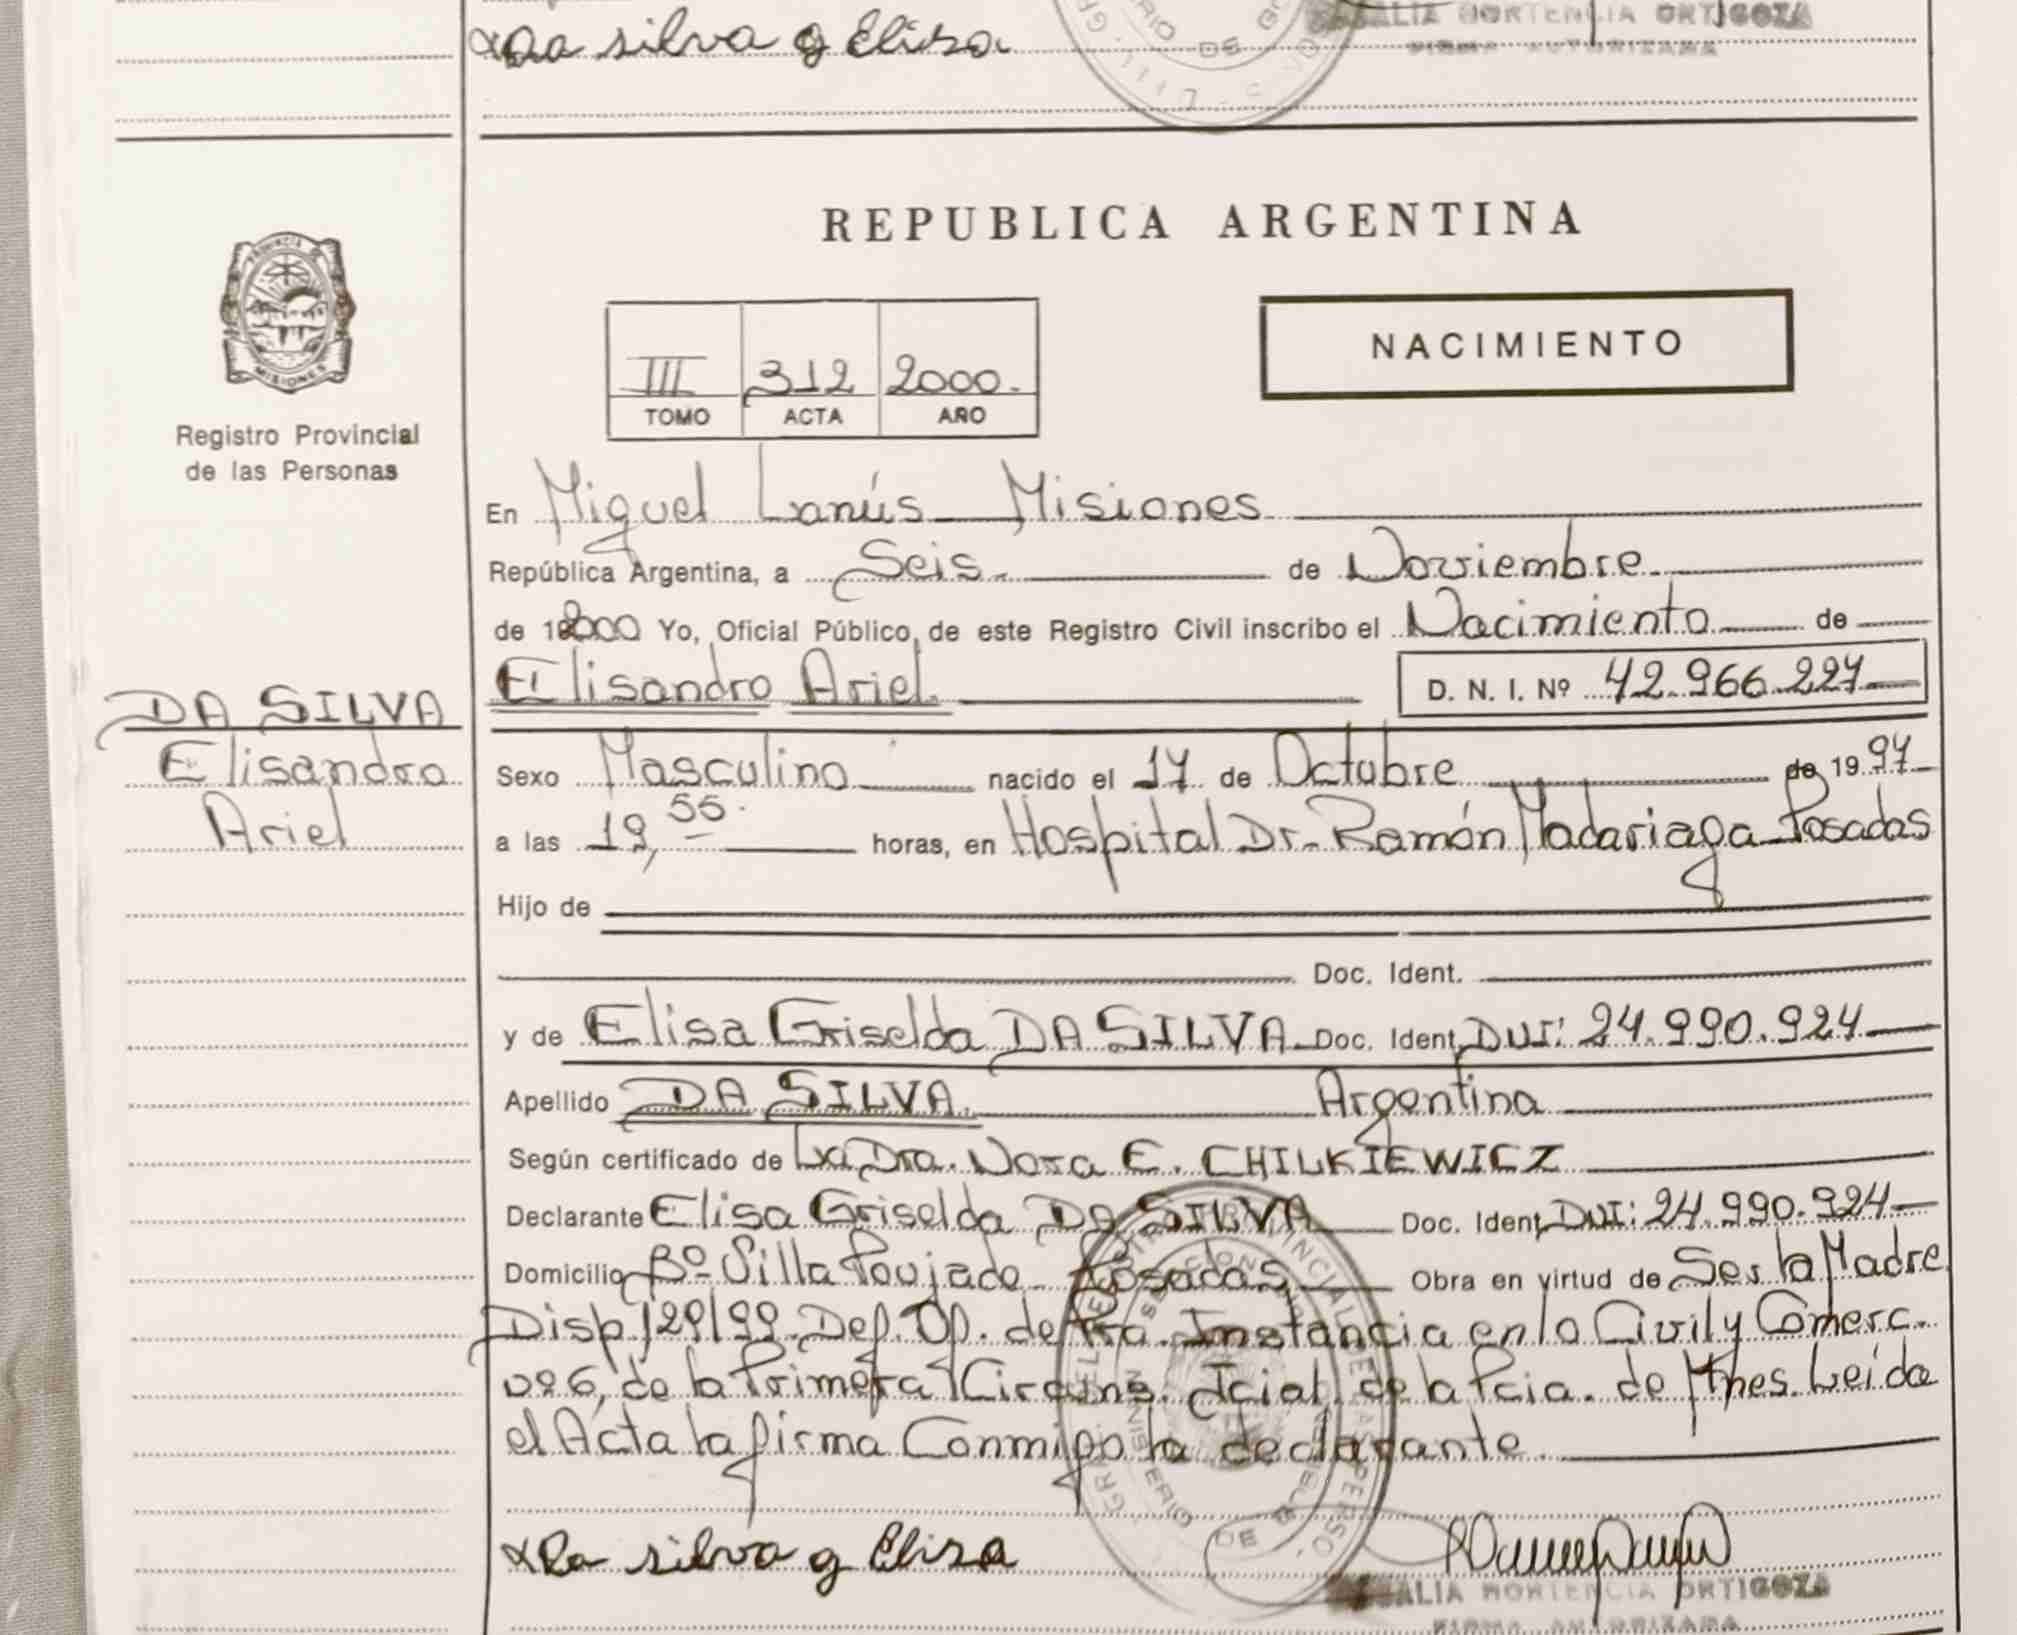 Da silva g Elisa
HORTENCIA ORTIGOZA
FIRMA AUTORIZADA
REPUBLICA ARGENTINA
PROVINCIA DE
MISIONES
Registro Provincial
de las Personas
III 312 2000.
TOMO ACTA AÑO
NACIMIENTO
En Miguel Lanús Misiones
República Argentina, a Seis de Noviembre
de 2000 Yo, Oficial Público, de este Registro Civil inscribo el Nacimiento de
Elisandro Ariel. D. N. I. Nº 42.966.227
DA SILVA
Elisandro
Ariel
Sexo Masculino nacido el 17 de Octubre de 1997
a las 19,55. horas, en Hospital Dr. Ramón Madariaga Posadas
Hijo de
Doc. Ident.
y de Elisa Griselda DA SILVA Doc. Ident. DNI: 24.990.924
Apellido DA SILVA. Argentina
Según certificado de La Dra. Nora E. CHILKIEWICZ
Declarante Elisa Griselda DA SILVA Doc. Ident. DNI: 24.990.924
Domicilio Bº Villa Poujade Posadas Obra en virtud de Ser la Madre
Disp 129/99. Def. Of. de Pra. Instancia en lo Civil y Comerc.
nº 6, de la Primera Circuns. Jcial. de la Pcia. de Mnes. Leida
el Acta la firma Conmigo la declarante.
Da silva g Elisa
HORTENCIA ORTIGOZA
FIRMA AUTORIZADA